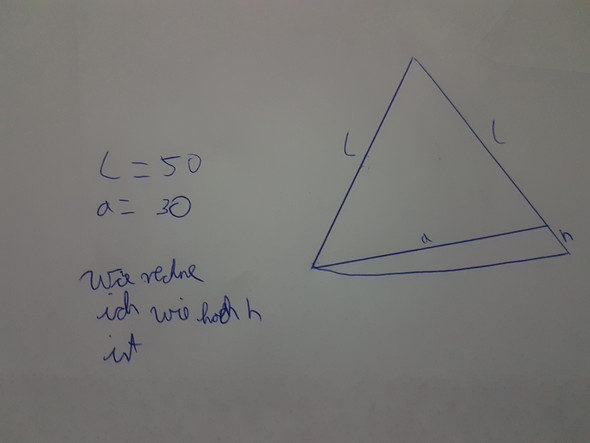 L = 50
a = 30
Wie rechne
ich wie hoch h
ist
L
L
a
h